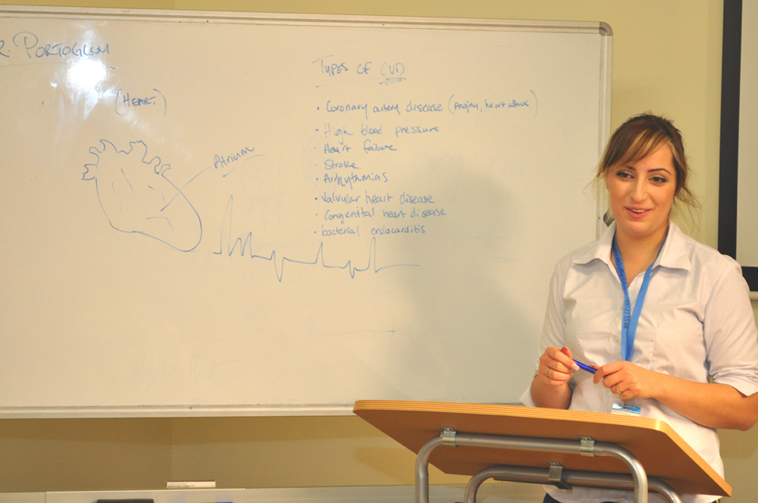 R. PORTOGLOU
(HEART)
Atrium
TYPES OF CVD
• Coronary artery disease (Angina, heart attack)
• High blood pressure
• Heart failure
• Stroke
• Arrhytamias
• Valvular heart disease
• Congenital heart disease
• bacterial endocarditis